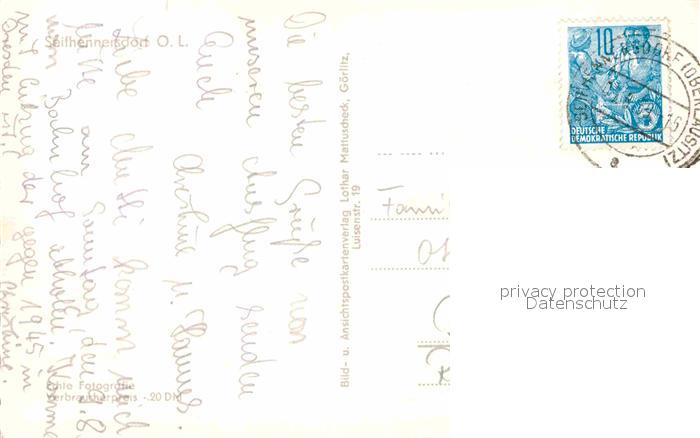 Seifhennersdorf O. L.
Die besten Grüße von
unserem Ausflug senden
Euch
Christine u. Hannes.
Liebe Mutti komm mich
bitte am Sonntag, den 9.8.
vom Bahnhof abholen. Komme
mit Eilzug der gegen 1945 in
Dresden ist. Christine.
Echte Fotografie
Verbraucherpreis -.20 DM
Bild- u. Ansichtspostkartenverlag Lothar Mattuscheck, Görlitz,
Luisenstr. 19
10
DEUTSCHE
DEMOKRATISCHE REPUBLIK
SEIFHENNERSDORF (OBERLAUSITZ)
Famil
privacy protection
Datenschutz